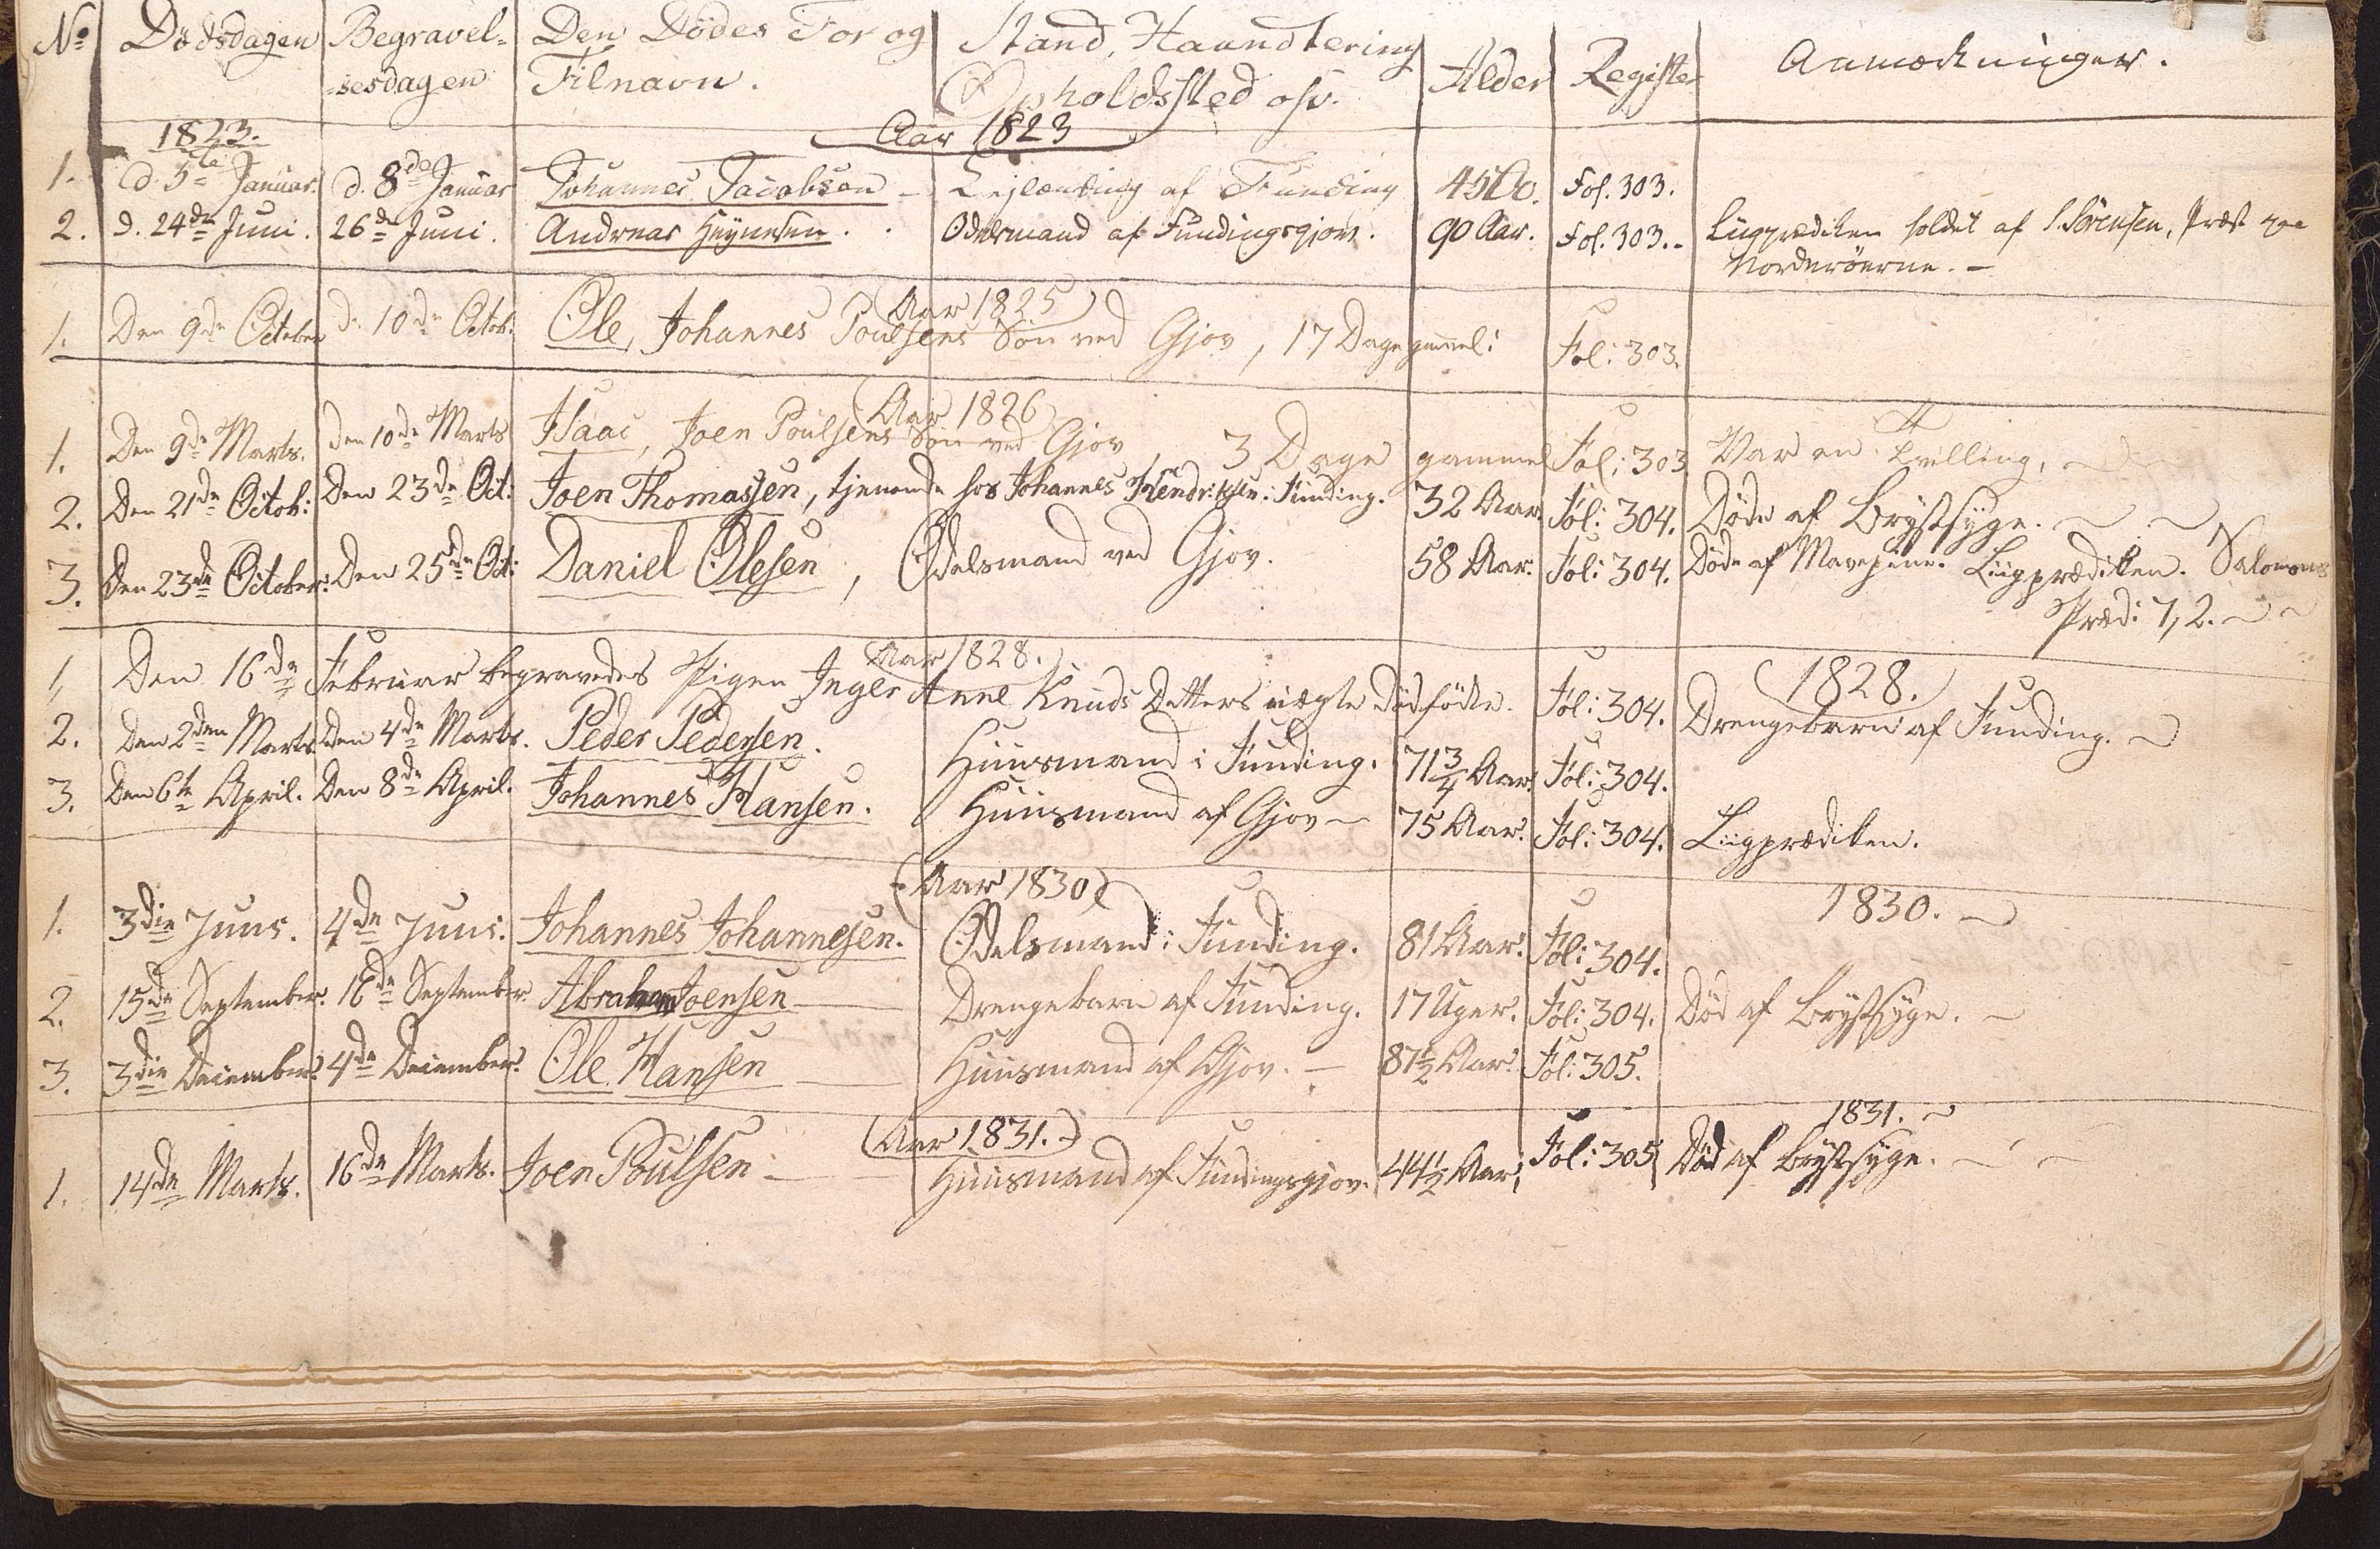 No Dödsdagen Begravel- Den Dödes For og Stand, Haandtering Alder Register Anmærkninger.
-sesdagen Tilnavn. Opholdssted osv.
1823. Aar 1823
1. d. 5te Januar. d. 8de Januar Johannes Jacobsen - Lejlænding af Funding 45 Fol. 303.
2. d. 24de Juni. 26de Juni. Andreas Heynesen . . Odelsmand af Fundingsgjov. 90 Aar. Fol. 303. - Liigprædiken holdet af S. Sörensen, Præst paa
Norderöerne. -
Aar 1825
1. Den 9de October d. 10de Octob. Ole, Johannes Poulsens Sön ved Gjov, 17 Dage gammel: Fol: 303.
Aar 1826
1. Den 9de Marts. den 10de Marts Isaac, Joen Poulsens Sön ved Gjov 3 Dage gammel Fol: 303 Var en Tvilling,
2. Den 21de Octob: Den 23de Oct: Joen Thomassen, tjenende hos Johannes Hendriksen i Funding. 32 Aar. Fol: 304. Döde af Brystsyge.
3. Den 23de October: Den 25de Oct: Daniel Olesen, Odelsmand ved Gjov. 58 Aar. Fol: 304. Döde af Mavepine. Liigprædiken. Salomons
Præd: 7, 2.
Aar 1828. 1828.
1, Den 16de Februar begravedes Pigen Inger Anne Knuds Datters uægte dödfödte. Fol: 304. Drengebarn af Funding.
2. Den 2den Marts Den 4de Marts. Peder Pedersen. Huusmand i Funding. 71 3/4 Aar. Fol: 304.
3. Den 6te April. Den 8de April. Johannes Hansen. Huusmand af Gjov - 75 Aar. Fol: 304. Liigprædiken.
Aar 1830 1830.
1. 3die Juni. 4de Juni. Johannes Johannesen. Odelsmand i Funding. 81 Aar. Fol: 304.
2. 15de September. 16de September. Abraham Joensen - Drengebarn af Funding. 17 Uger. Fol: 304. Död af Brystsyge. -
3. 3die December. 4de December. Ole Hansen - Huusmand af Gjov. - 87 1/2 Aar. Fol: 305.
Aar 1831. 1831.
1. 14de Marts. 16de Marts. Joen Poulsen - Huusmand af Fundingsgjov. 44 1/2 Aar, Fol: 305 Död af Brystsyge.